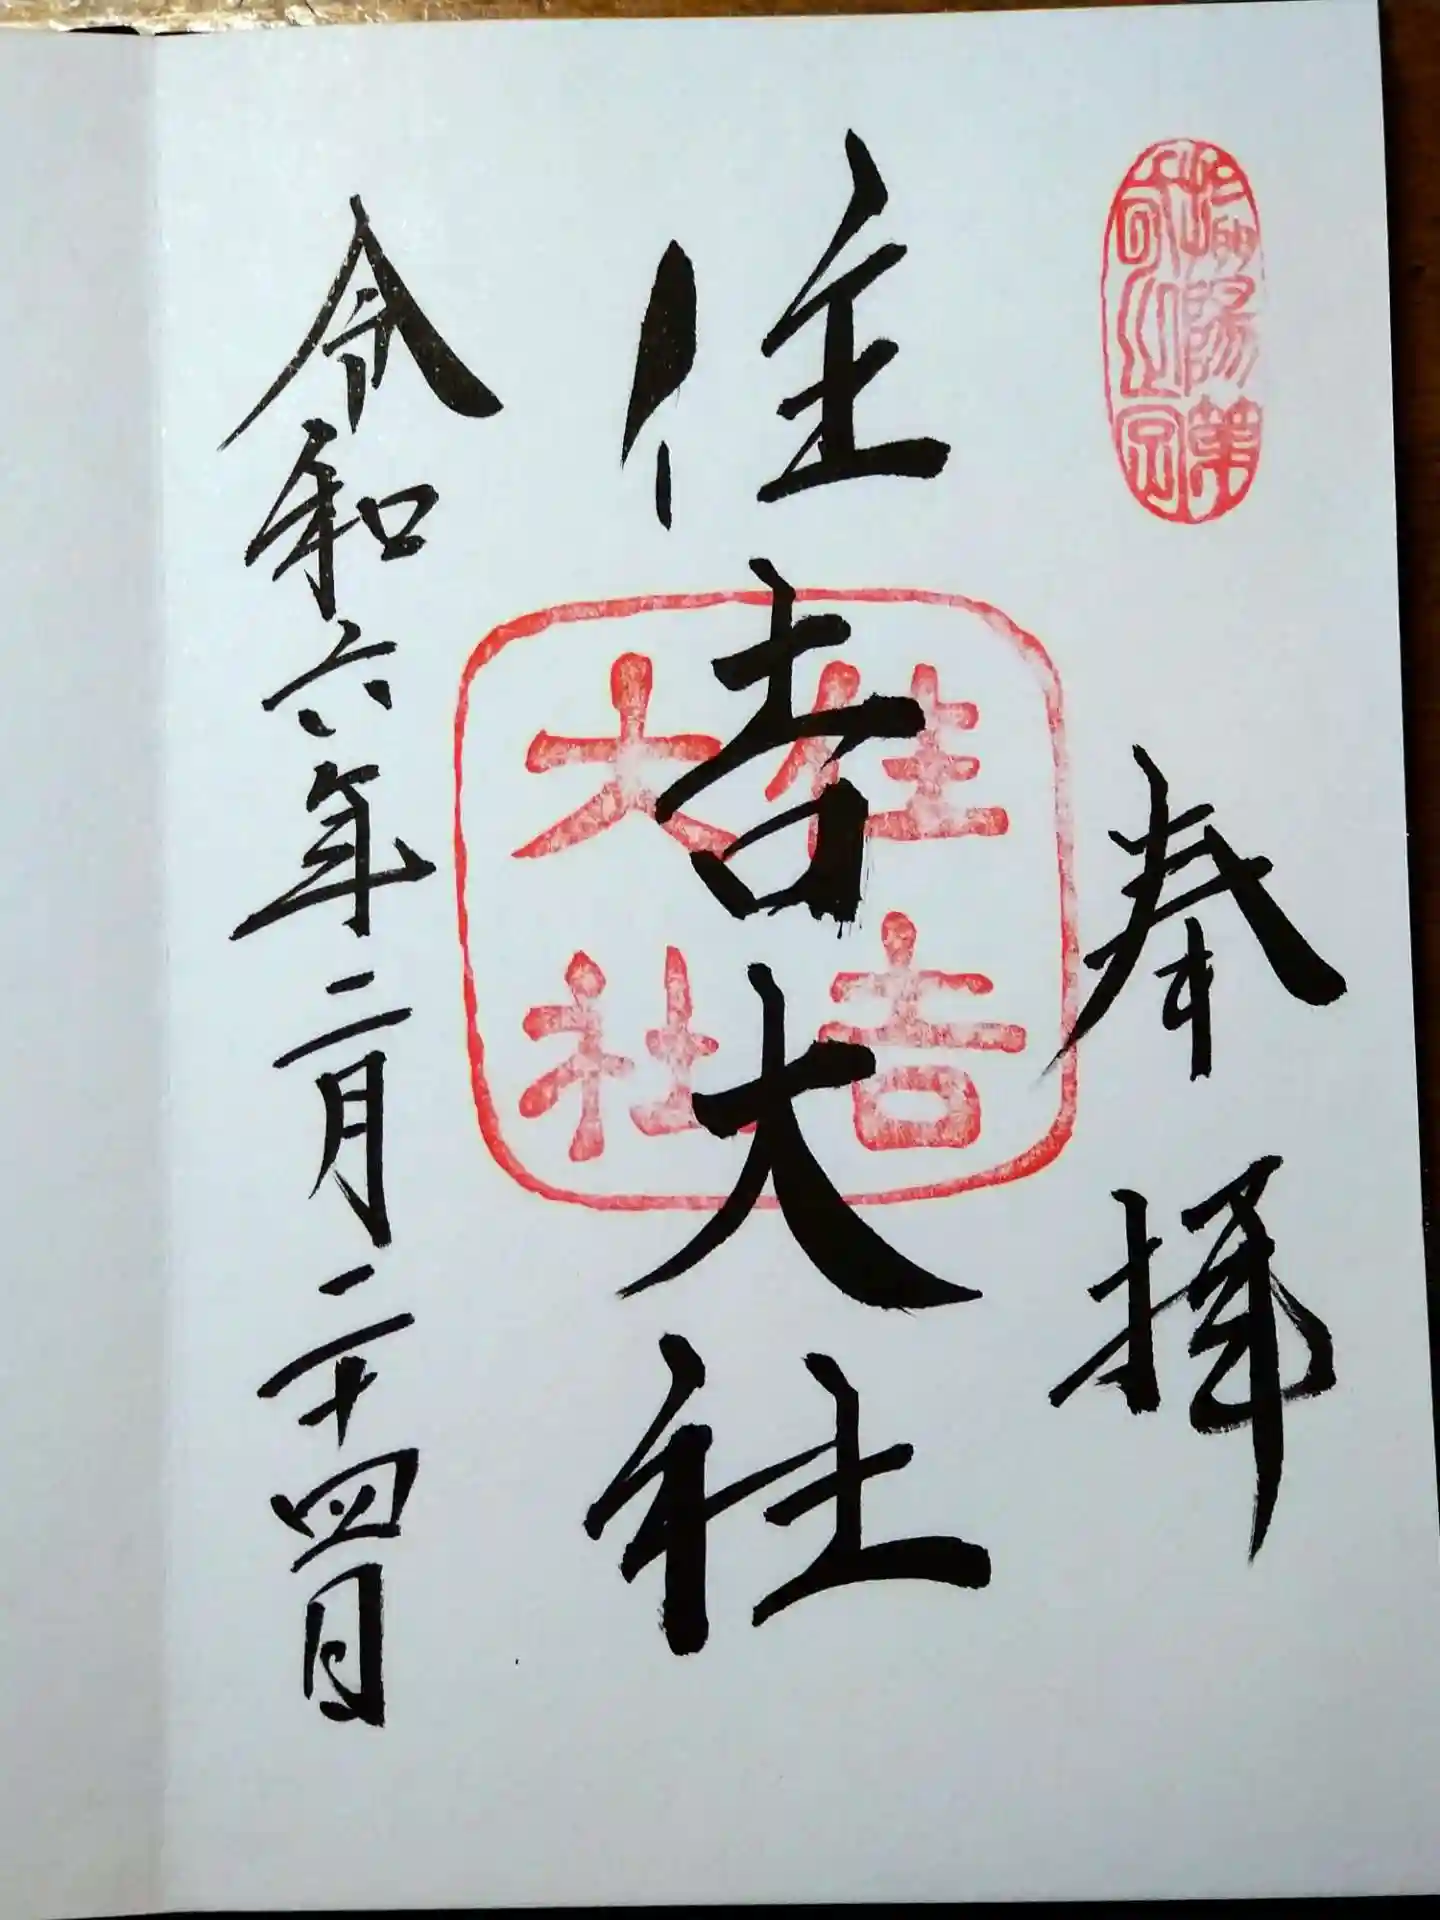 奉拝
住吉大社
住吉
大社
令和六年二月二十四日